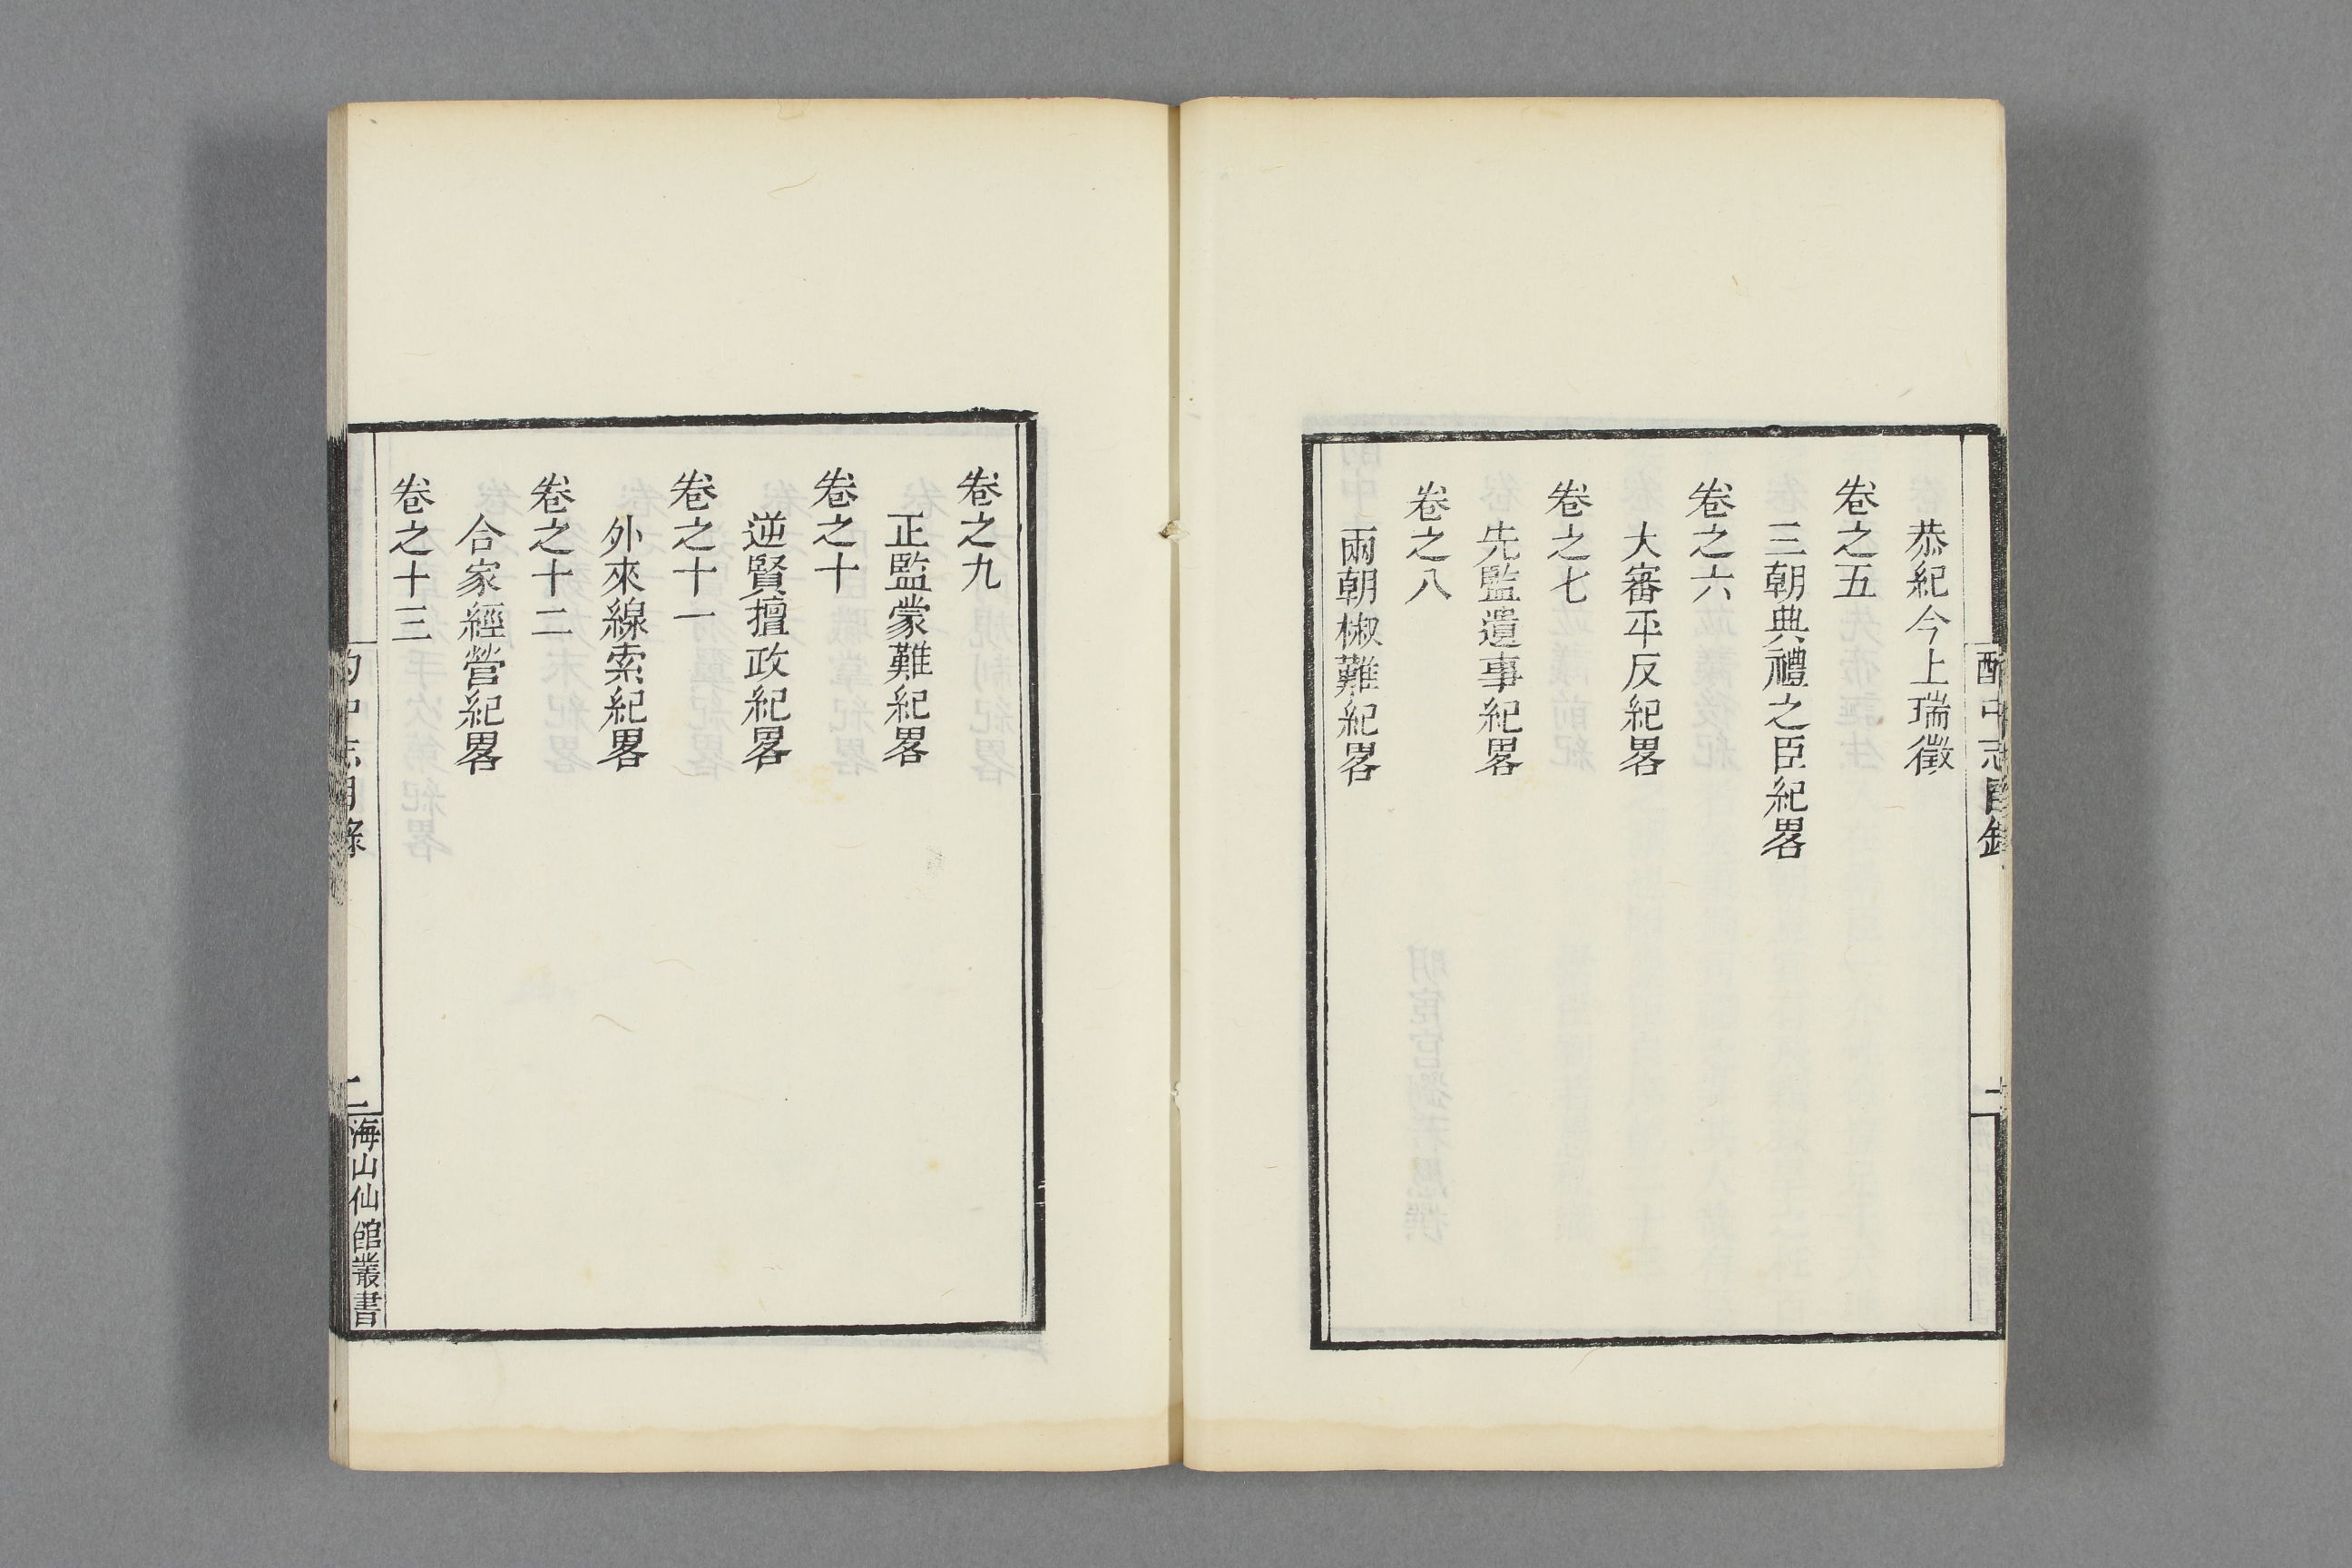 恭紀今上瑞徵
卷之五
三朝典禮之臣紀畧
卷之六
大審平反紀畧
卷之七
先監遺事紀畧
卷之八
兩朝椒難紀畧
卷之九
正監蒙難紀畧
卷之十
逆賢擅政紀畧
卷之十一
外來線索紀畧
卷之十二
合家經營紀畧
卷之十三
酌中志目錄
二
海山仙館叢書